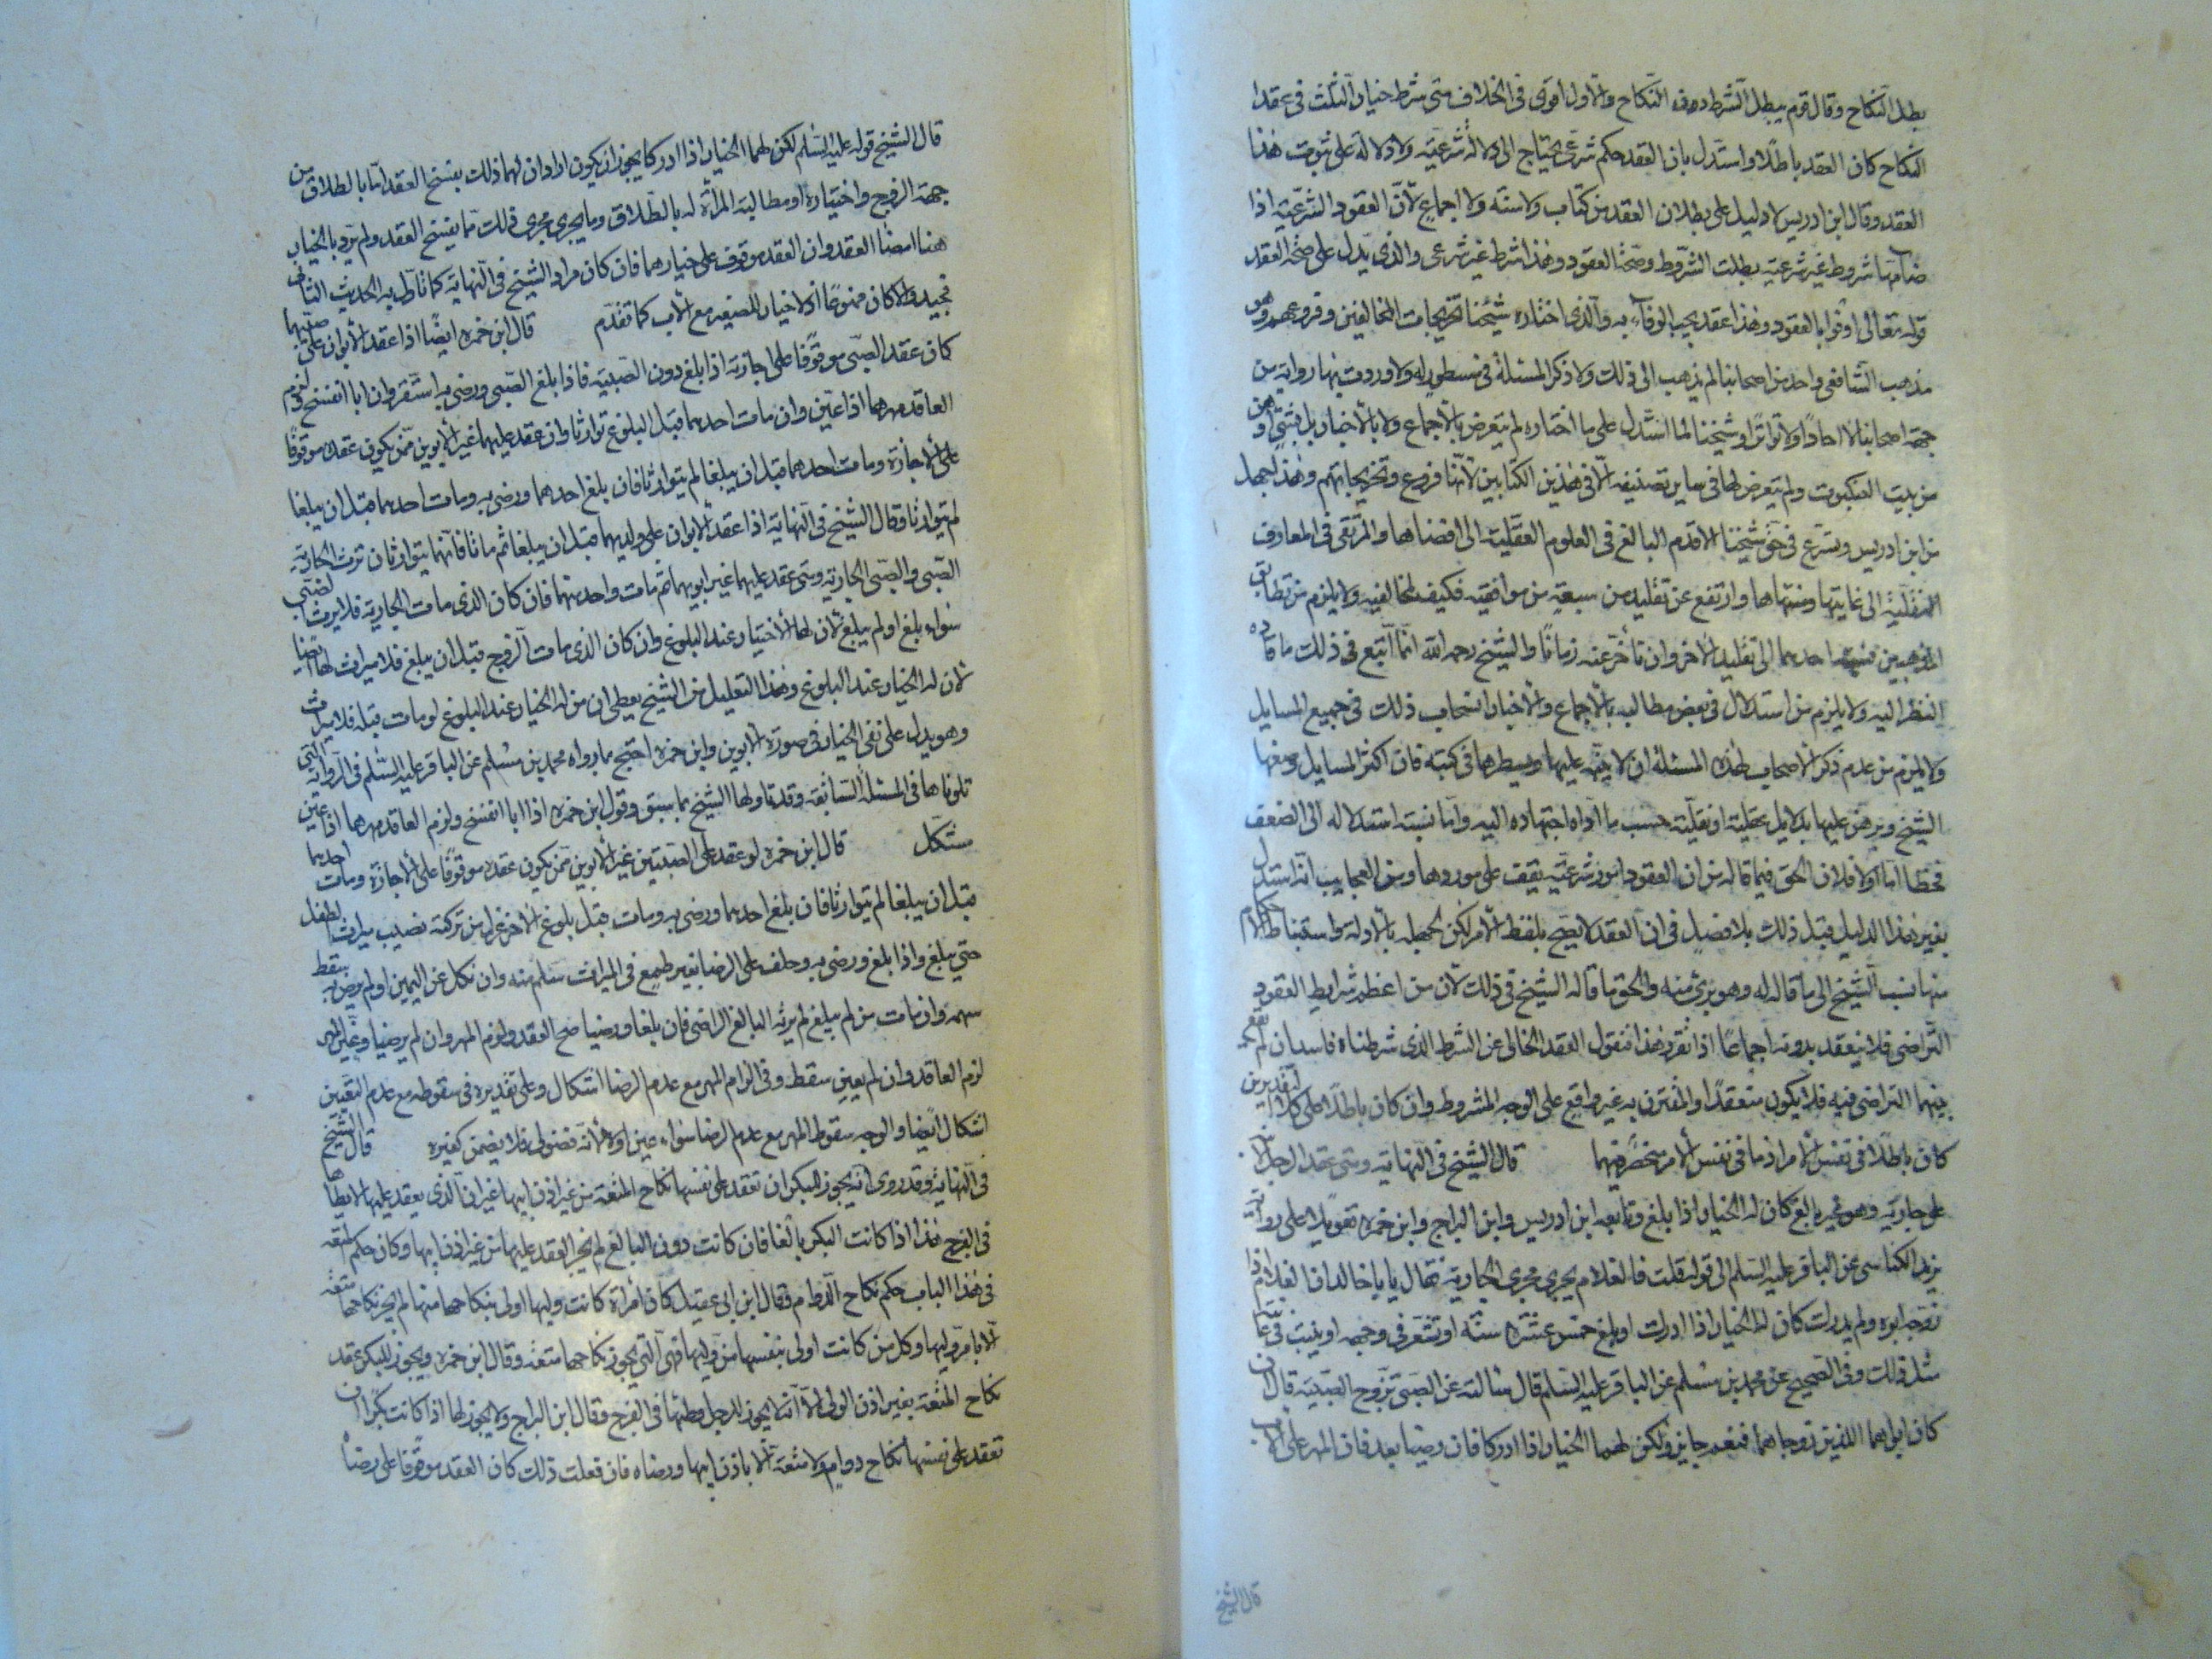 بطل النكاح وقال قوم يبطل الشرط دون النكاح والأول أقوى في الخلاف متى شرط خيار الثلث في عقد
النكاح كان العقد باطلا واستدل بان العقد حكم شرعي يحتاج الى دلالة شرعية ولا دلالة على ثبوت هذا
العقد وقال ابن ادريس لا دليل على بطلان العقد من كتاب ولا سنة ولا اجماع لأن العقود الشرعية اذا
ضامها شروط غير شرعية بطلت الشروط وصحت العقود وهذا شرط غير شرعي والذي يدل على صحة العقد
قوله تعالى اوفوا بالعقود وهذا عقد يجب الوفاء به والذي اختاره شيخنا تخريجات المخالفين وفروعهم وهو
مذهب الشافعي واحد من اصحابنا لم يذهب الى ذلك ولا ذكر المسئلة في مسطور له ولا وردت بها رواية من
جهة اصحابنا لا احادا ولا تواترا وشيخنا لما استدل على ما اختاره لم يتعرض بالاجماع ولا بالاخبار بل بشيء اوهن
من بيت العنكبوت ولم يتعرض لها في ساير تصنيفه الا في هذين الكتابين لأنها فروع وتخريجاتهم وهذا جهل
من ابن ادريس وتسرع في حق شيخنا الاقدم البالغ في العلوم العقلية الى اقصاها والمرتقي في المعارف
النقلية الى غايتها ومنتهاها وارتفع عن تقليد من سبقه من موافقيه فكيف لمخالفيه ولا يلزم من تطابق
المذهبين نسبة احدهما الى تقليد الآخر وان تأخر عنه زمانا والشيخ رحمه الله انما اتبع في ذلك ما قاده
النظر اليه ولا يلزم من استدلال في بعض مطالبه بالاجماع والاخبار انسحاب ذلك في جميع المسايل
ولا يلزم من عدم ذكر الأصحاب لهذه المسئلة ان لا ينبه عليها ويسطرها في كتبه فان اكثر المسايل فرعها
الشيخ وبرهن عليها بدلايل عقلية او نقلية حسب ما اداه اجتهاده اليه وأما نسبة استدلاله الى الضعف
فخطأ اما اولا فلان الحق فيما قاله من ان العقود امور شرعية يقف على موردها ومن العجايب انه استدل
بغير هذا الدليل قبل ذلك بلا فصل في ان العقد لا يصح بلفظ الأمر لكن لجهله بالأدلة واستنباط الأحكام
منها نسب الشيخ الى ما قاله له وهو بريء منه والحق ما قاله الشيخ في ذلك لأن من اعظم شرايط العقود
التراضي فلا ينعقد بدونه اجماعا اذا تقرر هذا فنقول العقد الخالي عن الشرط الذي شرطناه فاسد ان لم يقع
بينهما التراضي فيه فلا يكون منعقدا والمقترن به غير واقع على الوجه المشروط وان كان باطلا على كلا التقديرين
كان باطلا في نفس الأمر اذ ما في نفس الأمر منحصر فيهما قال الشيخ في النهاية ومتى عقد الرجل لابنه
على جارية وهو غير بالغ كان له الخيار اذا بلغ وتابعه ابن ادريس وابن البراج وابن حمزه تعويلا على رواية
يزيد الكناسي عن الباقر عليه السلم الى قوله قلت فالغلام يجري مجرى الجارية فقال يا با خالد ان الغلام اذا
زوجه ابوه ولم يدرك كان له الخيار اذا ادرك او بلغ خمس عشرة سنة او يشعر في وجهه او ينبت في عانته
مثل ذلك وفي الصحيح عن محمد بن مسلم عن الباقر عليه السلم قال سالته عن الصبي تزوج الصبية قال ان
كان ابواهما اللذين زوجاهما فنعم جايز ولكن لهما الخيار اذا ادركا فان رضيا بعد فان المهر على الأب
قال الشيخ
قال الشيخ قوله عليه السلم لكن لهما الخيار اذا ادركا يجوز ان يكون اراد ان لهما ذلك بفسخ العقد اما بالطلاق من
جهة الزوج واختياره او مطالبة المرأة له بالطلاق وما يجري مجرى ذلك مما يفسخ العقد ولم يرد بالخيار
هنا امضا العقد وان العقد موقوف على خيارهما فان كان مراد الشيخ في النهاية كما تأول به الحديث الثاني
فجيد والا كان ممنوعا اذ لا خيار للصغير مع الأب كما تقدم قال ابن حمزه ايضا اذا عقد الأبوان على صبيهما
كان عقد الصبي موقوفا على اجازته اذا بلغ دون الصبية فاذا بلغ الصبي ورضي به استقر وان ابا انفسخ ولزم
العاقد مهرهما اذا عين وان مات احدهما قبل البلوغ توارثا وان عقد عليهما غير الأبوين ممن يكون عقده موقوفا
على الاجازة ومات احدهما قبل ان يبلغا لم يتوارثا فان بلغ احدهما ورضي به ومات احدهما قبل ان يبلغا
لم يتوارثا وقال الشيخ في النهاية اذا عقد الأبوان على ولديهما قبل ان يبلغا ثم ماتا فانهما يتوارثان ترث الجارية
الصبي والصبي الجارية ومتى عقد عليهما غير ابويهما ثم مات واحد منهما فان كان الذي مات الجارية فلا يرث الصبي
سواء بلغ او لم يبلغ لأن لها الاختيار عند البلوغ وان كان الذي مات الزوج قبل ان يبلغ فلا ميراث لها ايضا
لأن له الخيار عند البلوغ وهذا التعليل من الشيخ يعطي ان من له الخيار عند البلوغ لو مات قبله فلا ميراث
وهو يدل على نفي الخيار في صورة الأبوين وابن حمزه احتج بما رواه محمد بن مسلم عن الباقر عليه السلم في الرواية التي
تلوناها في المسئلة السابقة وقد تاولها الشيخ بما سبق وقول ابن حمزه اذا ابا انفسخ ولزم العاقد مهرهما اذا عين
مشكل قال ابن حمزه لو عقد على الصبيتين غير الأبوين ممن يكون عقده موقوفا على الاجازة ومات احدهما
قبل ان يبلغا لم يتوارثا فان بلغ احدهما ورضي به ومات قبل بلوغ الآخر عزل من تركته نصيب ميراث الطفل
حتى يبلغ واذا بلغ ورضي به وحلف على الرضا بغير طمع في الميراث سلم منه وان نكل عن اليمين او لم يرض به سقط
سهمه وان مات من لم يبلغ لم يرثه البالغ الراضي فان بلغا ورضيا صح العقد ولزم المهر وان لم يرضيا وعين المهر
لزم العاقد وان لم يعين سقط وفي الزام المهر مع عدم الرضا اشكال وعلى تقديره في سقوطه مع عدم التعيين
اشكال ايضا والوجه سقوط المهر مع عدم الرضا سواء عين اولا لأنه فضولي فلا يضمن كغيره قال الشيخ
في النهاية وقد روى انه يجوز للبكر ان تعقد على نفسها نكاح المتعة من غير اذن ابيها غير ان الذي يعقد عليها لا يطأها
في الفرج هذا اذا كانت البكر بالغا فان كانت دون البالغ لم يجز العقد عليها من غير اذن ابيها وكان حكم المتعة
في هذا الباب حكم نكاح الدوام وقال ابن ابي عقيل كان امرأة كانت وليها اولى بنكاحها منها لم يجز نكاحها متعة
الا بامر وليها وكل من كانت اولى بنفسها من وليها فهي التي يجوز نكاحها متعة وقال ابن حمزه ويجوز للبكر عقد
نكاح المتعة بغير اذن الولي الا انه لا يجوز للرجل وطيها في الفرج وقال ابن البراج ولا يجوز لها اذا كانت بكرا ان
تعقد على نفسها نكاح دوام ولا متعة الا باذن ابيها ورضاه فان فعلت ذلك كان العقد موقوفا على رضا